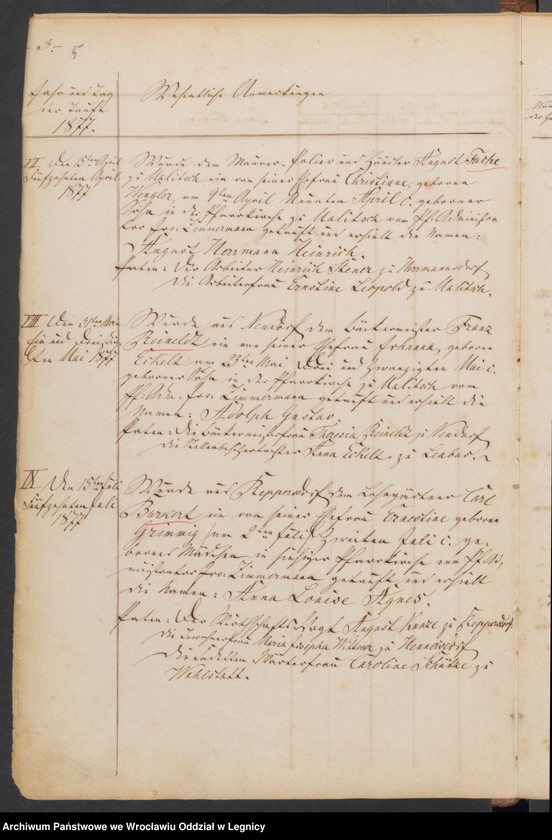 3 5
Jahr und Tag
der Taufe
1877.
Wesentliche Anmerkungen
VII Den 15ten April
Fünfzehnten April
1877
Wurde dem Maurer-Polier und Häusler August Fuche
zu Malitsch ein von seiner Ehefrau Christiane, geboren
am 9ten April Neunten April c. geborner
Sohn in der Pfarrkirche zu Malitsch vom
Zimmermann getauft und erhielt die Namen:
August Herrmann Heinrich.
Paten: Der Arbeiter Heinrich zu Herrmannsdorf
Die Arbeiterfrau Ernstine Leopold zu Malitsch.
VIII Den 31ten Mai
Ein und Dreißig-
sten Mai 1877
Wurde aus Neudorf dem Franz
Reineltz ein von seiner Ehefrau Johanna, geboren
Eckelt am 23ten Mai Drei und Zwanzigsten Mai c.
geborner Sohn in der Pfarrkirche zu Malitsch vom
Zimmermann getauft und erhielt die
Namen: Adolph Gustav.
Paten: Die Theresia Reineltz zu Neudorf
Die Anna Eckelt zu
IX Den 15ten Juli
Fünfzehnten Juli
1877
Wurde aus Keppersdorf dem Lohngärtner Carl
Burkert ein von seiner Ehefrau Ernestine geboren
Grimmig am 2ten Juli Zweiten Juli c. ge-
bornes Mädchen in hiesiger Pfarrkirche vom
Zimmermann getauft und erhielt
die Namen: Anna Louise Agnes.
Paten: Der Wirthschaftsvogt August zu Keppersdorf.
Die Maria Josepha zu Hennersdorf
Die Wärterfrau Caroline zu
Wahlstatt.
Archiwum Państwowe we Wrocławiu Oddział w Legnicy